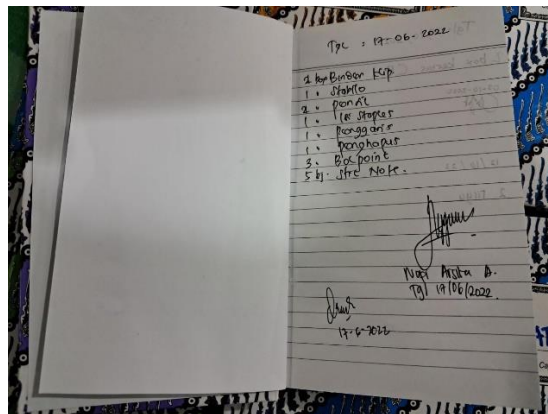 Tgl : 17-06-2022
1 Binder klip
1 " Stabilo
2 " pensil
1 " isi staples
1 " penggaris
1 " penghapus
3 " Bolpoint
5 bj. Note.
Novi A.
Tgl 17/06/2022
17-6-2022